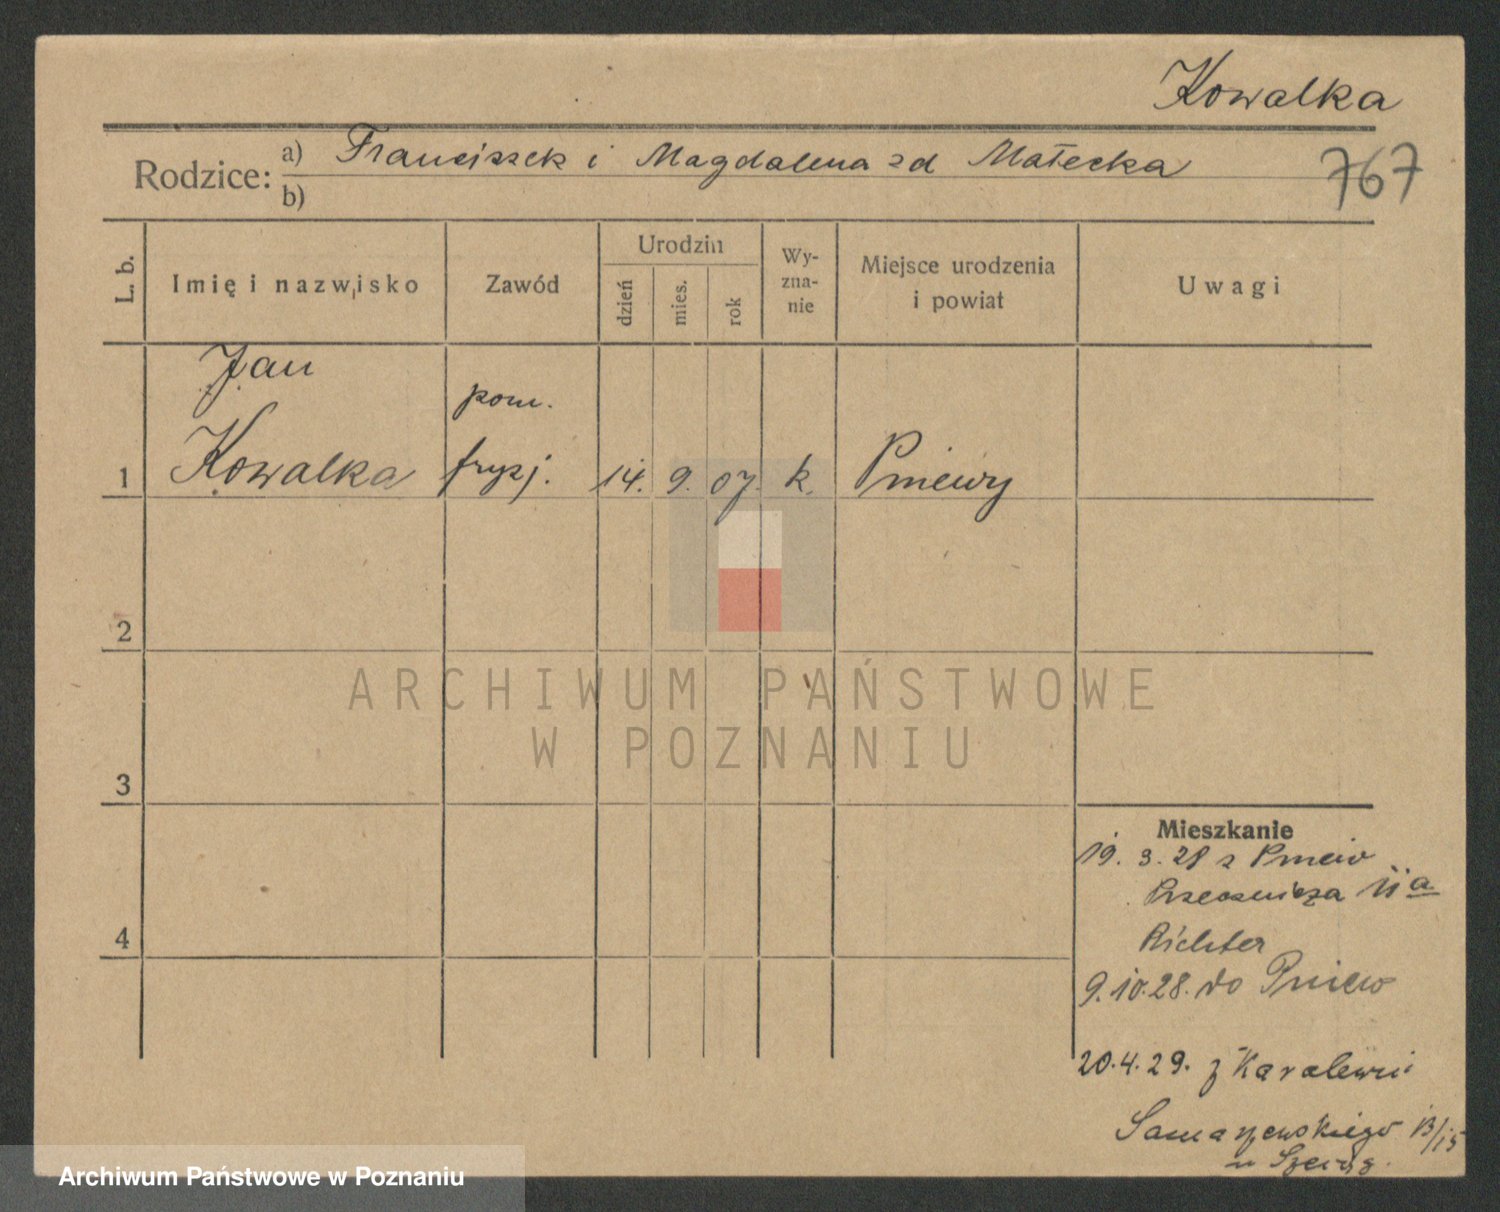 Kowalka
Rodzice:
a) Franciszek i Magdalena zd Małecka
767
b)
L. b.
Imię i nazwisko
Zawód
Urodzin
dzień
mies.
rok
Wy-
zna-
nie
Miejsce urodzenia
i powiat
Uwagi
Jan
pom.
1
Kowalka
fryzj.
14. 9. 07. k.
Pniewy
2
ARCHIWUM PAŃSTWOWE
W POZNANIU
3
Mieszkanie
19. 3. 28 z Pniew
11a
4
Richter
9.10.28. do Pniew
20.4.29. z
Samarzewskiego 13/15
u
Archiwum Państwowe w Poznaniu